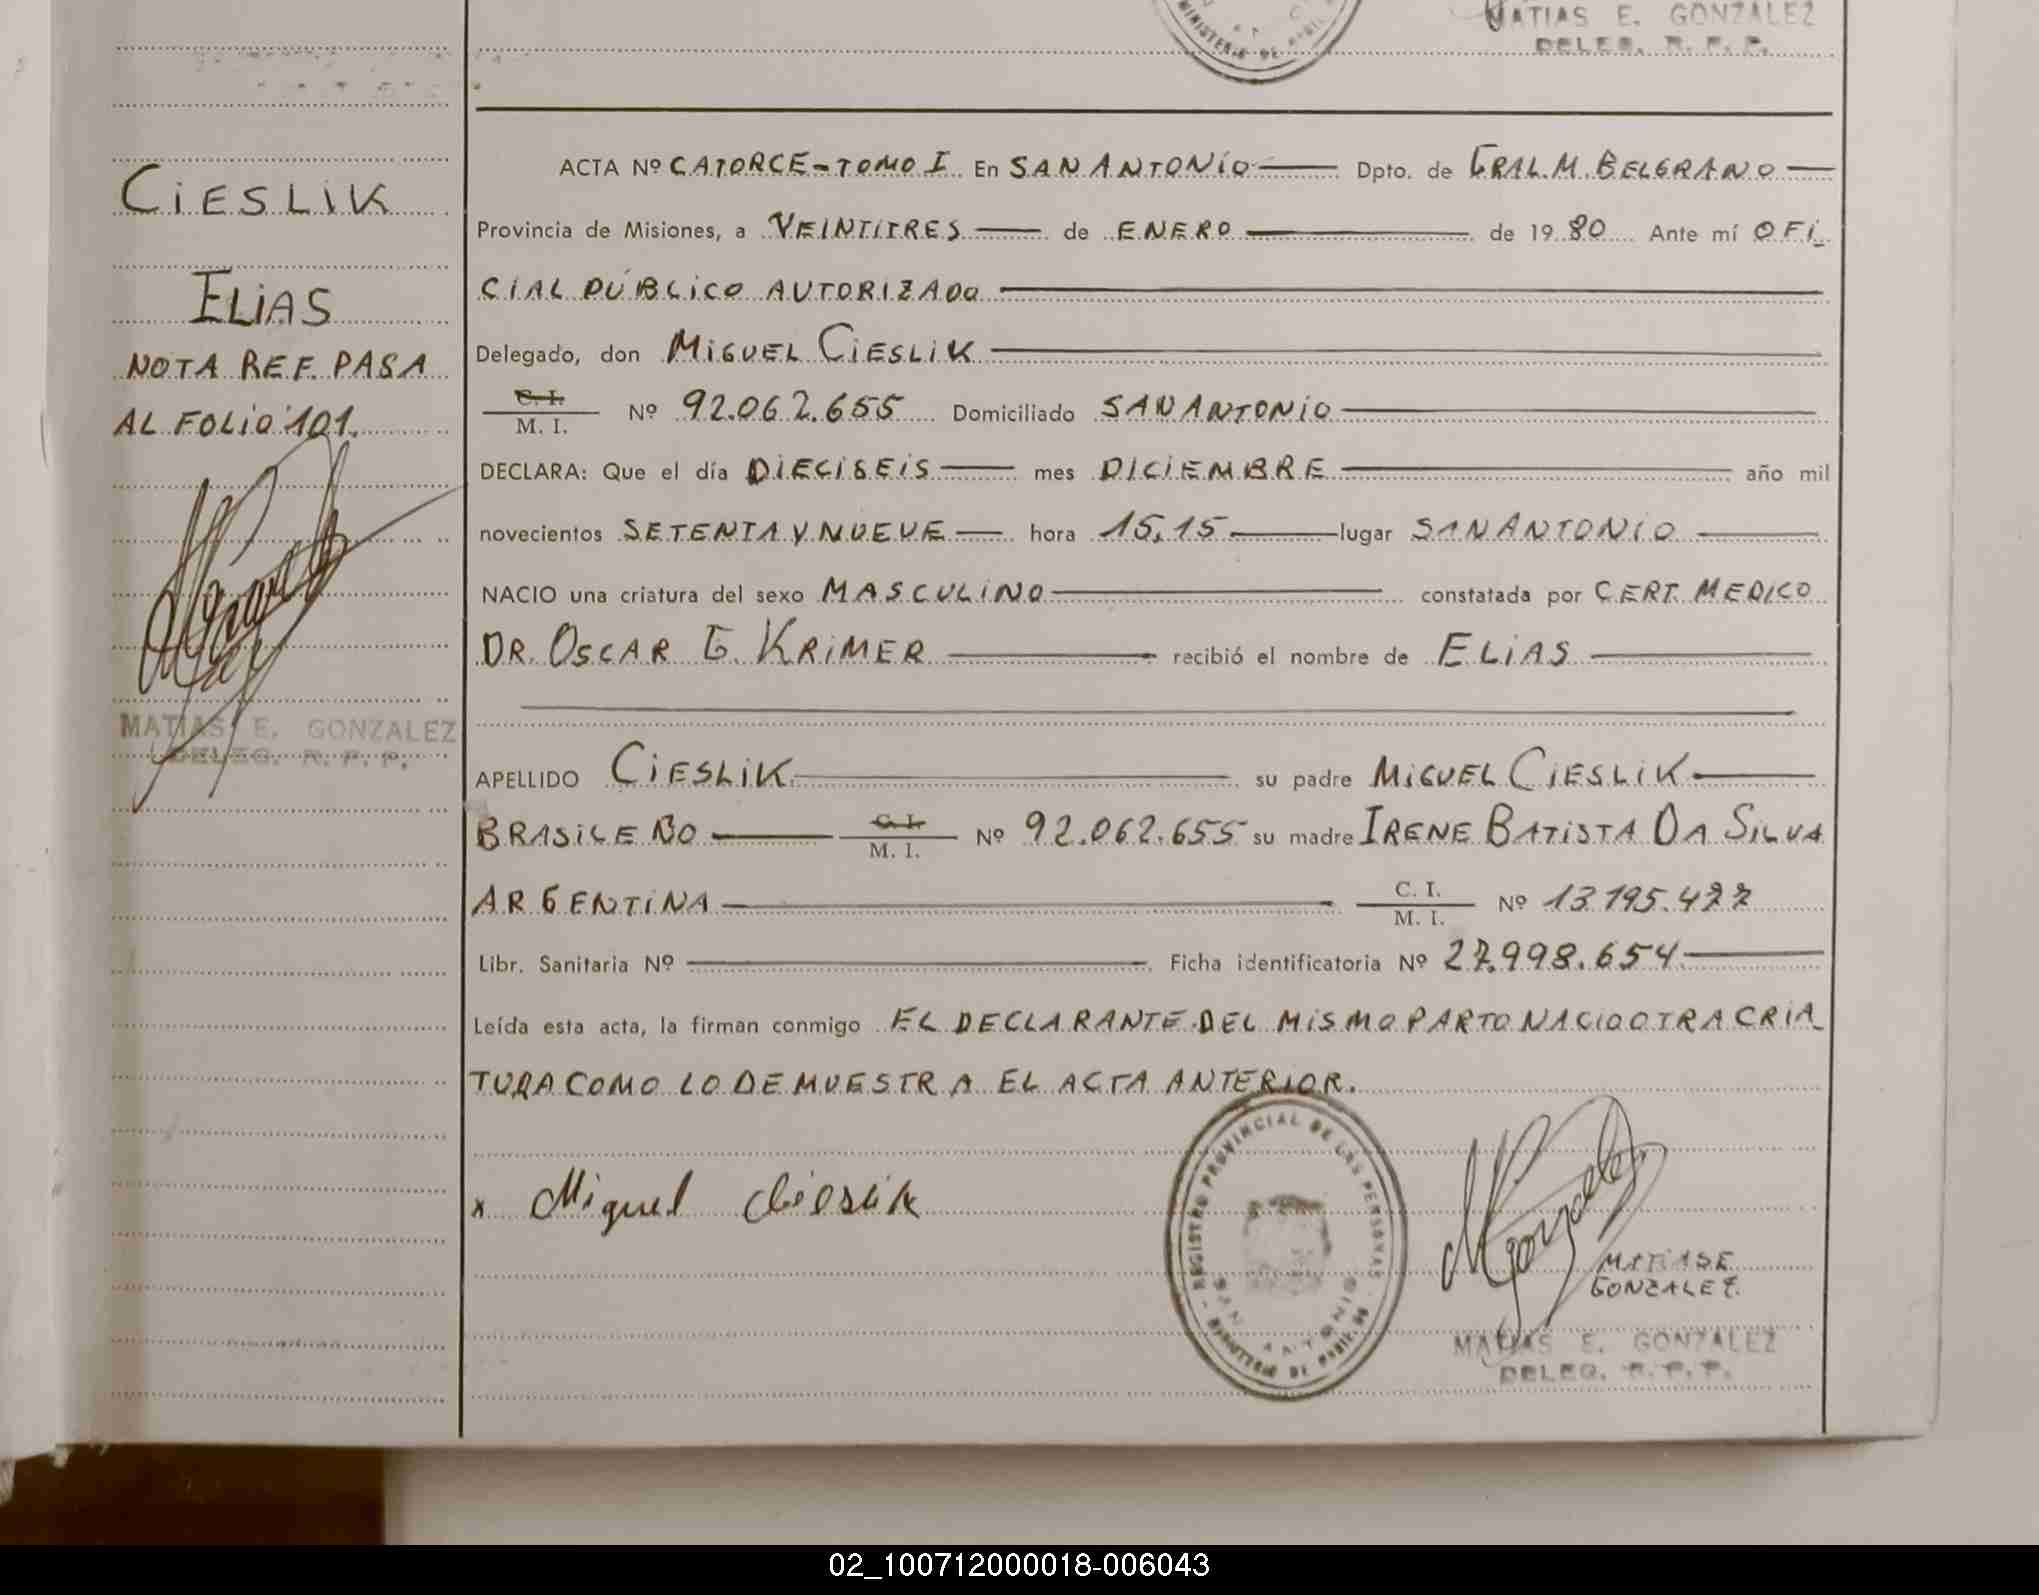 MATIAS E. GONZALEZ
DELEG. R. P. P.
MINISTERIO DE
CIESLIK
ELIAS
NOTA REF. PASA
AL FOLIO 101.
MATIAS E. GONZALEZ
DELEG. R. P. P.
ACTA Nº CATORCE-TOMO I En SAN ANTONIO Dpto. de GRAL. M. BELGRANO
Provincia de Misiones, a VEINTITRES de ENERO de 1980 Ante mí OFI_
CIAL PÚBLICO AUTORIZADO
Delegado, don MIGUEL CIESLIK
C. I.
M. I. Nº 92.062.655 Domiciliado SAN ANTONIO
DECLARA: Que el día DIECISEIS mes DICIEMBRE año mil
novecientos SETENTA Y NUEVE hora 15,15 lugar SAN ANTONIO
NACIO una criatura del sexo MASCULINO constatada por CERT. MEDICO
DR. OSCAR G. KRIMER recibió el nombre de ELIAS
APELLIDO CIESLIK su padre MIGUEL CIESLIK
BRASILEÑO C. I. M. I. Nº 92.062.655 su madre IRENE BATISTA DA SILVA
ARGENTINA C. I. M. I. Nº 13.195.477
Libr. Sanitaria Nº Ficha identificatoria Nº 27.998.654
Leída esta acta, la firman conmigo EL DECLARANTE. DEL MISMO PARTO NACIO OTRA CRIA_
TURA COMO LO DEMUESTRA EL ACTA ANTERIOR.
x Miguel Cieslik
REGISTRO PROVINCIAL DE LAS PERSONAS
SAN ANTONIO
MINISTERIO DE
MGonzalez
MATIAS E.
GONZALEZ
MATIAS E. GONZALEZ
DELEG. R. P. P.
02_100712000018-006043